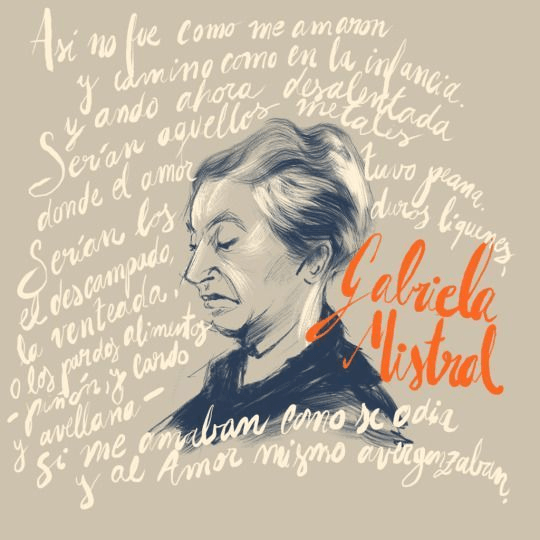 Así no fue como me amaron
y camino como en la infancia.
y ando ahora desalentada
Serían aquellos metales
donde el amor tuvo peana.
Serían los duros líquenes,
el descampado,
la venteada,
o los pardos alimentos
- piñón, y cardo
y avellana -
si me amaban como se odia
y al Amor mismo avergonzaban.
Gabriela
Mistral